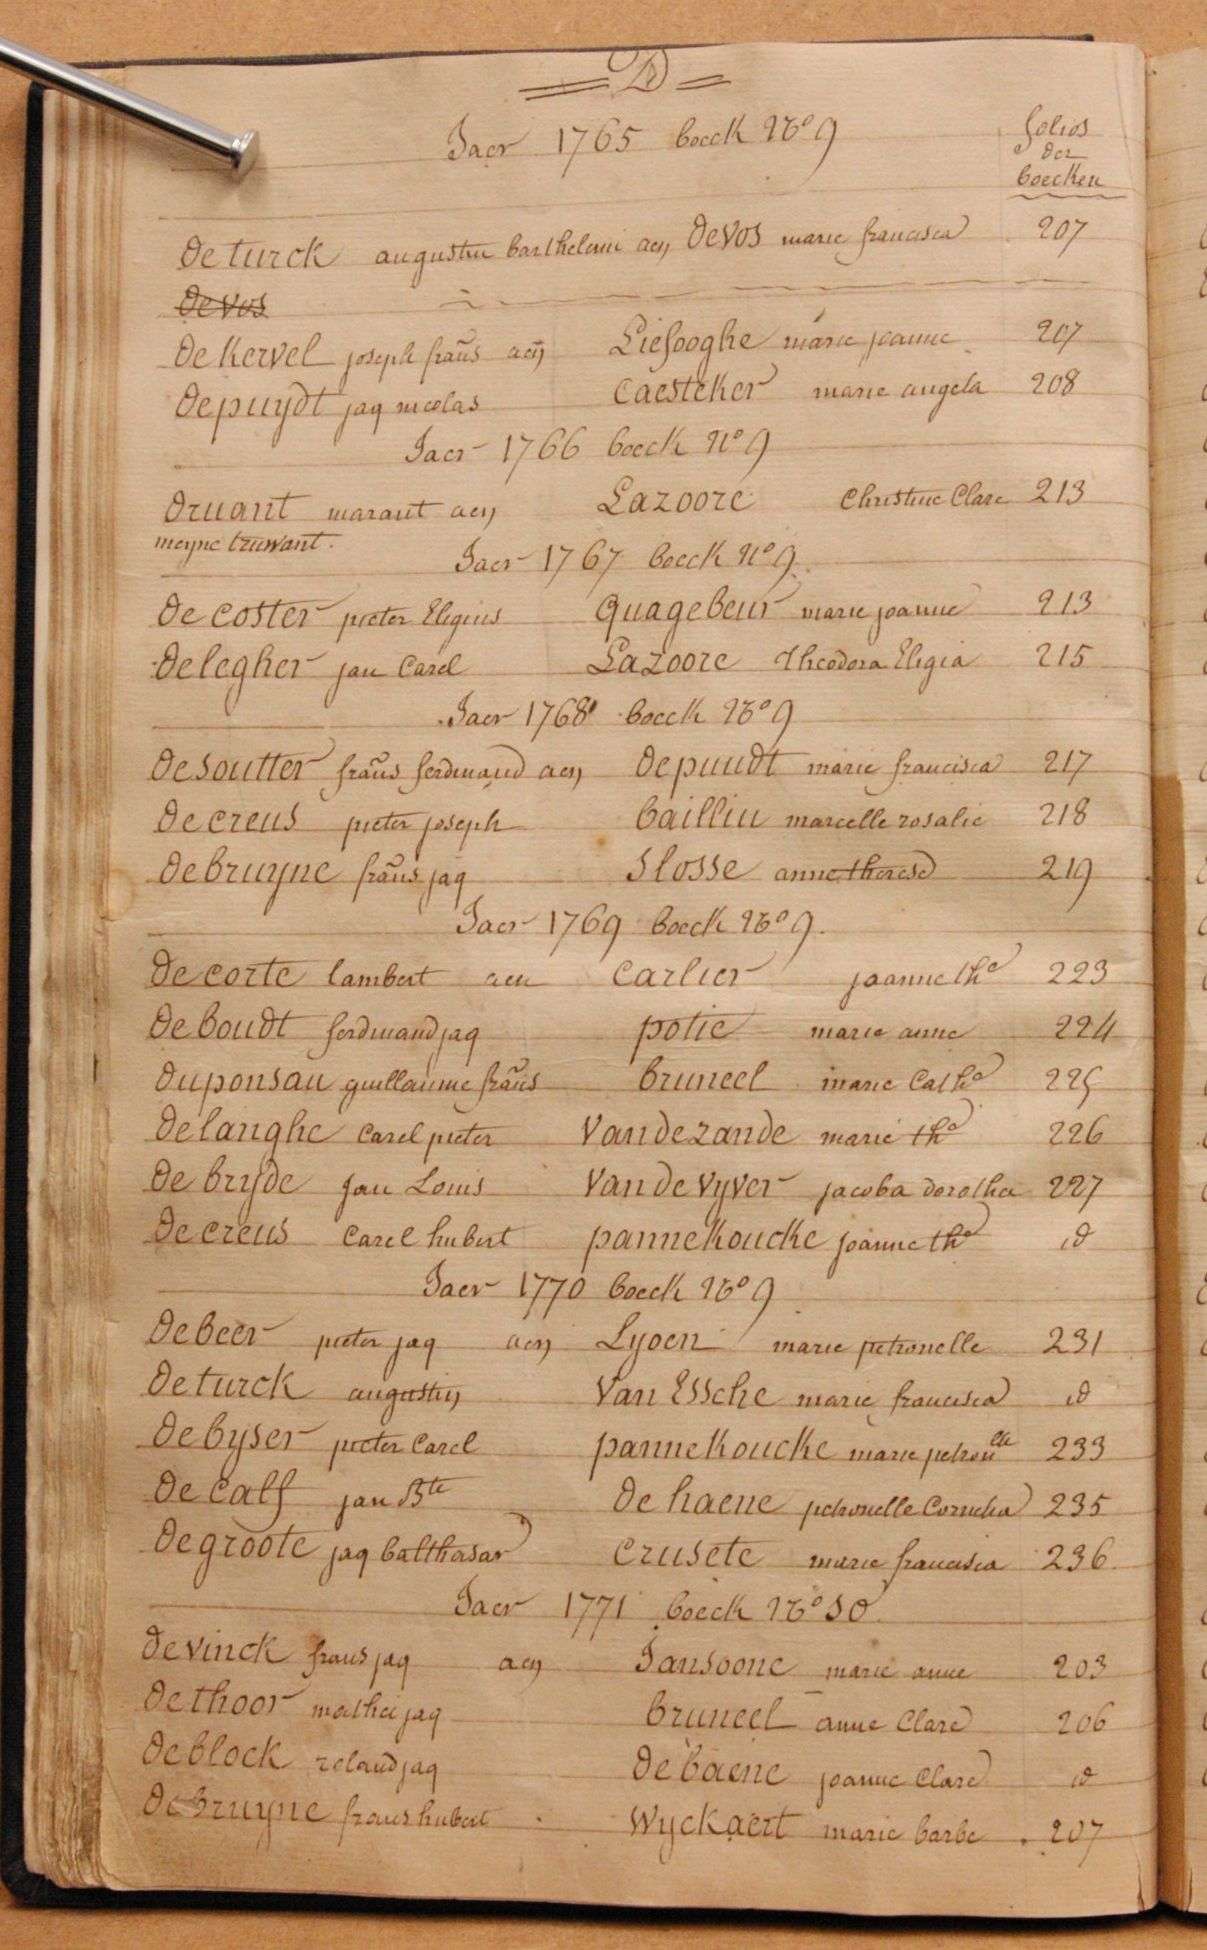 D
Jaer 1765 boeck No 9
folios
der
boecken
Deturck augustin barthelemi aen Devos marie francisca 207
Devos
Dekervel joseph frañs aen Liefooghe marie joanne 207
Depuydt jaq nicolas Caesteker marie angela 208
Jaer 1766 boeck No 9
Druant marant aen Lazoore Christine Clare 213
meyne truwant.
Jaer 1767 boeck No 9
Decoster pieter Eligius quagebeur marie joanne 213
Delegher jan Carel Lazoore Theodora Eligia 215
Jaer 1768 boeck No 9
Desoutter frañs ferdinand aen Depuudt marie francisca 217
Decreus pieter joseph bailliu marcelle rosalie 218
Debruyne frañs jaq Slosse anne therese 219
Jaer 1769 boeck No 9.
Decorte lambert aen Carlier joanne the 223
Deboudt ferdinand jaq potie marie anne 224
Duponsau guillaume frañs bruneel marie Cathe 225
Delanghe Carel pieter Vandezande marie the 226
De bryde Jan Louis Van de Vyver jacoba dorothea 227
Decreus Carel hubert pannekoucke joanne the id
Jaer 1770 boeck No 9
Debeer pieter jaq aen Lyoen marie petronelle 231
Deturck augustin Van Essche marie francisca id
Debyser pieter Carel pannekoucke marie petronelle 233
De Calf jan Bte De haene petronelle Cornelia 235
Degroote jaq balthasar Crusete marie francisca 236
Jaer 1771 boeck No 10
Devinck frans jaq aen Jansoone marie anne 203
Dethoor mathei jaq bruneel anne Clare 206
Deblock roland jaq De baene joanne Clare id
Debruyne frans hubert Wyckaert marie barbe 207